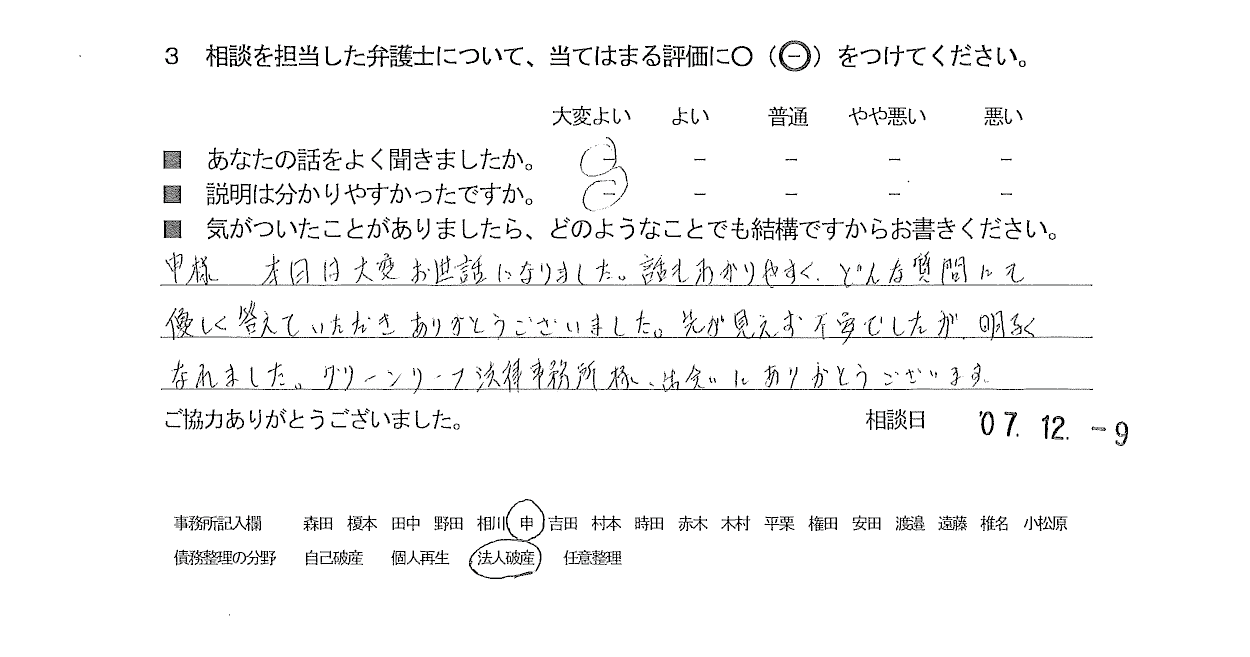 3 相談を担当した弁護士について、当てはまる評価に〇(㊀)をつけてください。
大変よい よい 普通 やや悪い 悪い
■ あなたの話をよく聞きましたか。 - - - - -
■ 説明は分かりやすかったですか。 - - - - -
■ 気がついたことがありましたら、どのようなことでも結構ですからお書きください。
申様 本日は大変お世話になりました。話もわかりやすく、どんな質問にも
優しく答えていただきありがとうございました。先が見えず不安でしたが、明るく
なれました。グリーンリーフ法律事務所様、出会いにありがとうございます。
ご協力ありがとうございました。 相談日 '07. 12. -9
事務所記入欄 森田 榎本 田中 野田 相川 申 吉田 村本 時田 赤木 木村 平栗 権田 安田 渡邉 遠藤 椎名 小松原
債務整理の分野 自己破産 個人再生 法人破産 任意整理